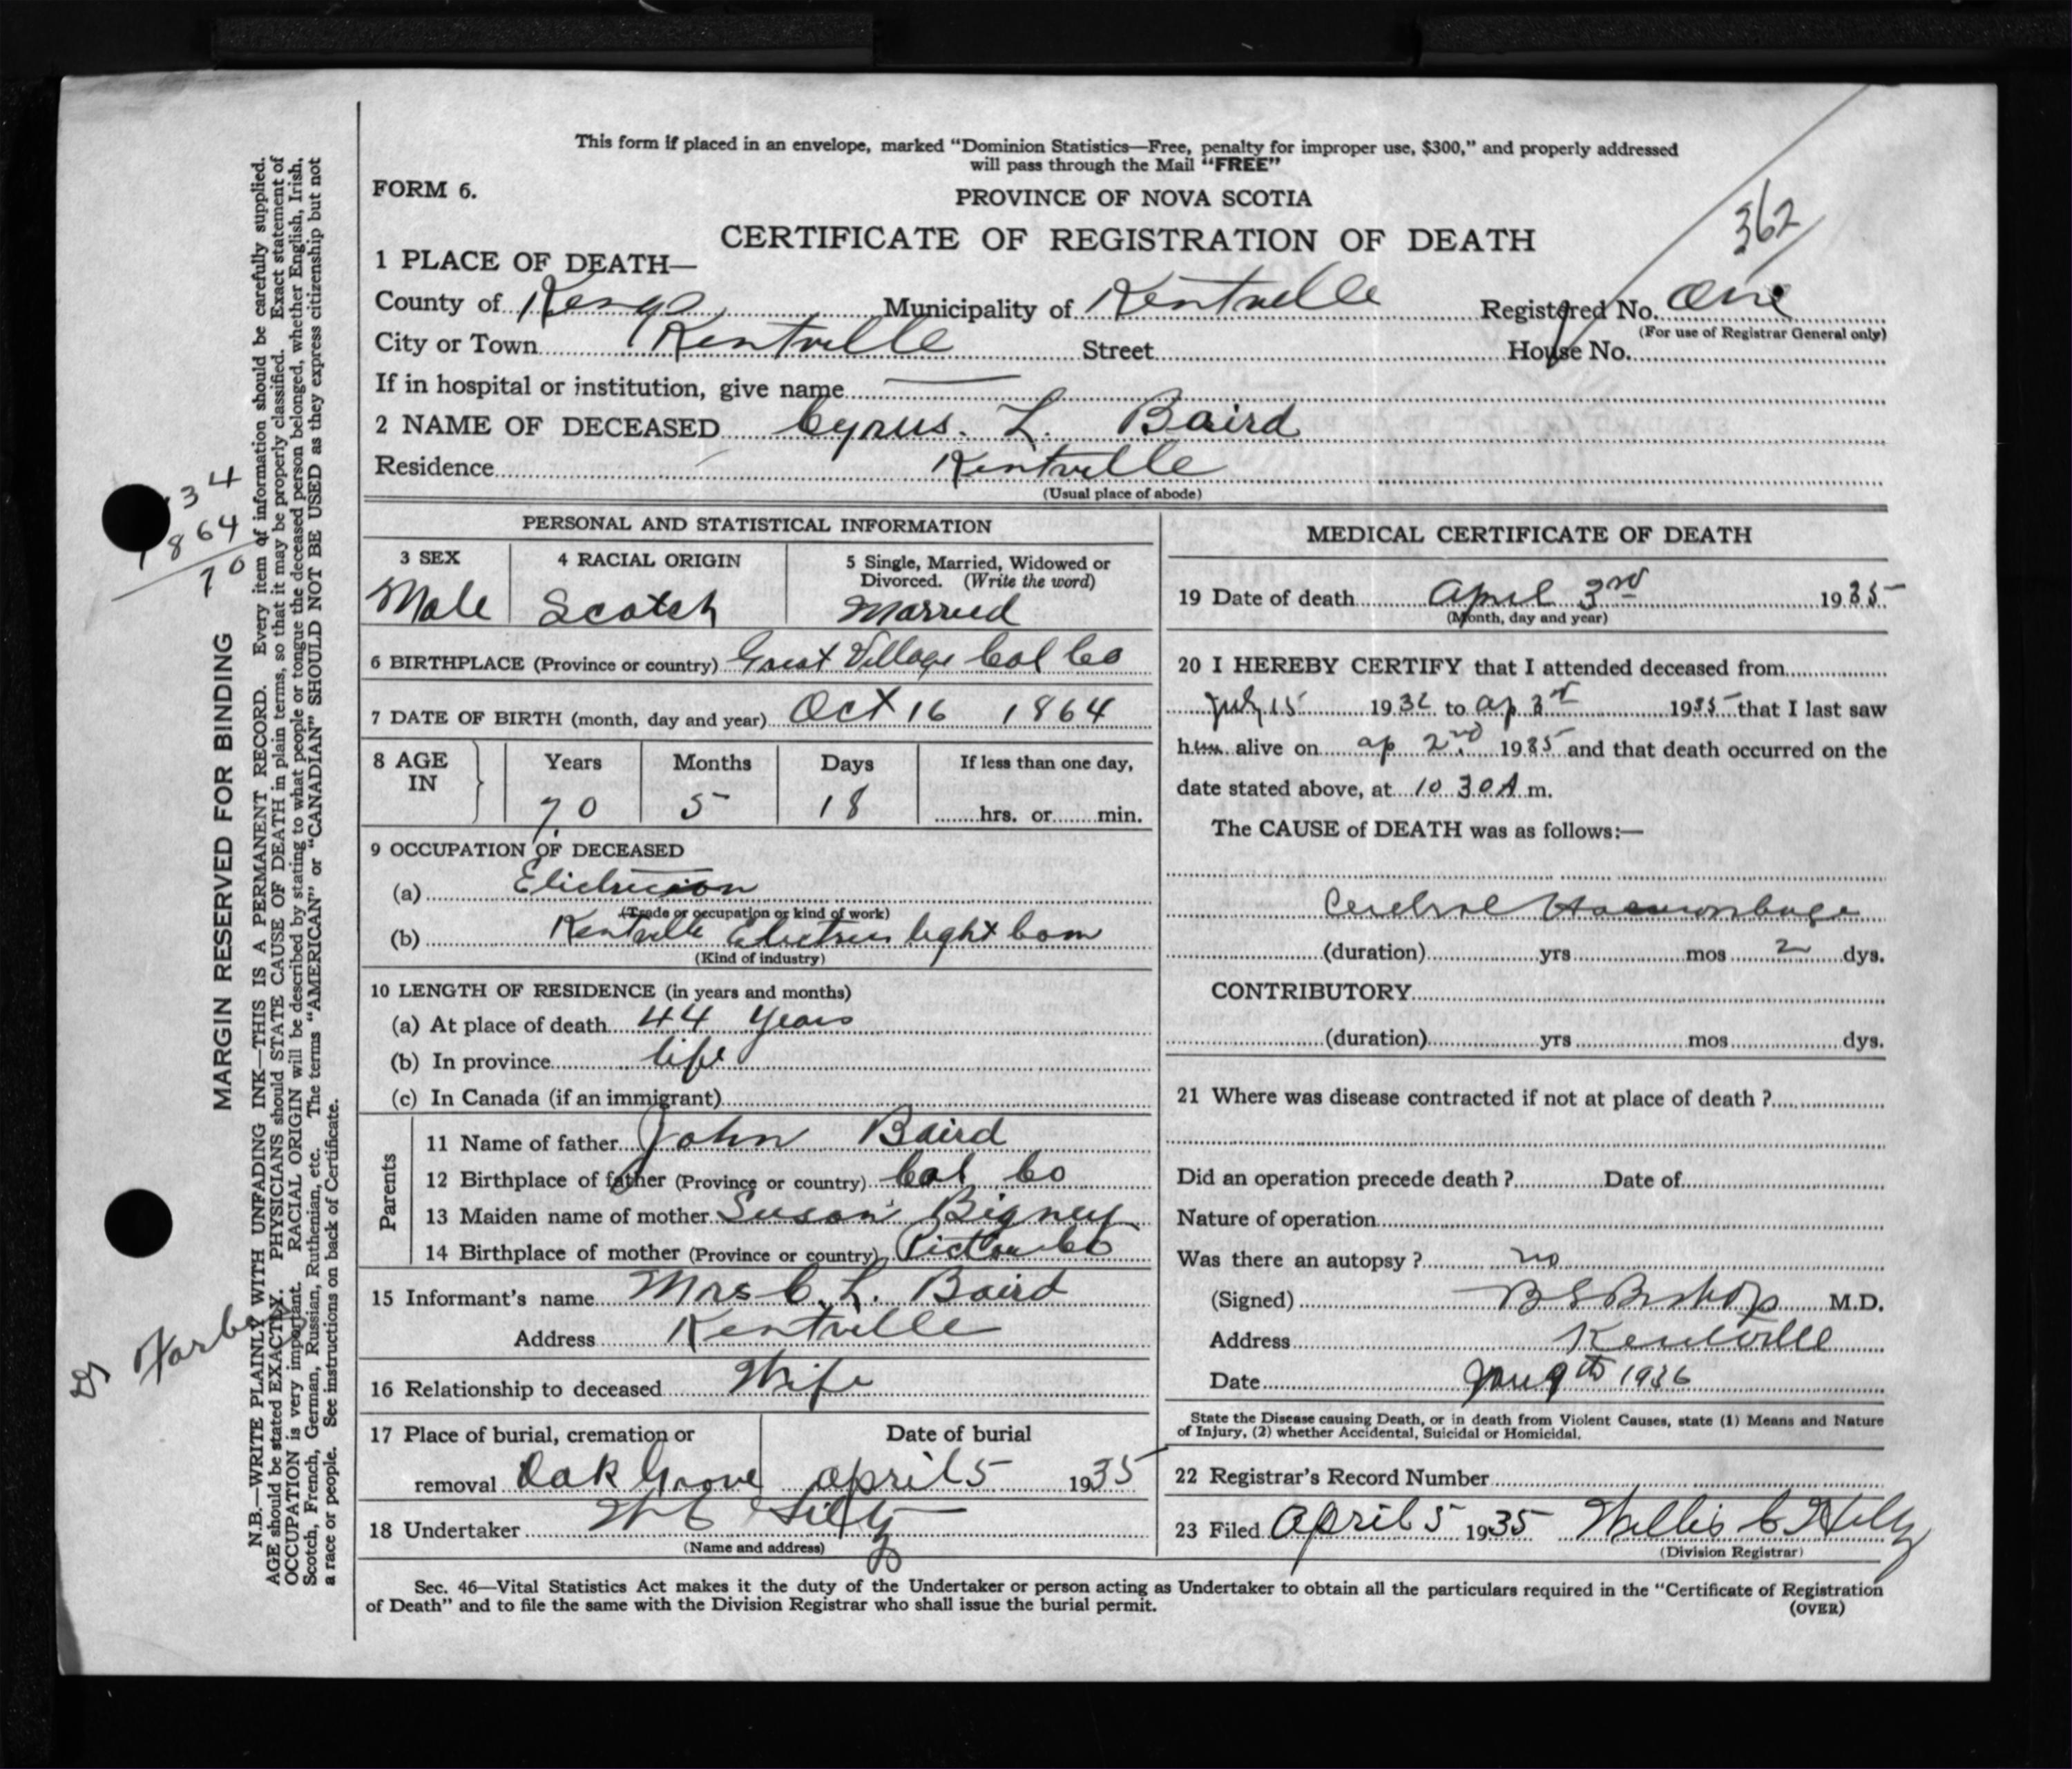 This form if placed in an envelope, marked "Dominion Statistics—Free, penalty for improper use, $300," and properly addressed
will pass through the Mail "FREE"
FORM 6.
PROVINCE OF NOVA SCOTIA
362
CERTIFICATE OF REGISTRATION OF DEATH
1 PLACE OF DEATH—
County of Kings Municipality of Kentville Registered No. One
(For use of Registrar General only)
City or Town Kentville Street House No.
If in hospital or institution, give name —
2 NAME OF DECEASED Cyrus. L. Baird
Residence Kentville
(Usual place of abode)
PERSONAL AND STATISTICAL INFORMATION
3 SEX
Male
4 RACIAL ORIGIN
Scotch
5 Single, Married, Widowed or
Divorced. (Write the word)
Married
6 BIRTHPLACE (Province or country) Great Village Col Co
7 DATE OF BIRTH (month, day and year) Oct 16 1864
8 AGE
IN
Years Months Days If less than one day,
70 5 18 hrs. or min.
9 OCCUPATION OF DECEASED
(a) Elictricion
(Trade or occupation or kind of work)
(b) Kentville Electric light Com
(Kind of industry)
10 LENGTH OF RESIDENCE (in years and months)
(a) At place of death 44 years
(b) In province life
(c) In Canada (if an immigrant)
Parents
11 Name of father John Baird
12 Birthplace of father (Province or country) Col Co
13 Maiden name of mother Susan Bigney
14 Birthplace of mother (Province or country) Pictou Co
15 Informant's name Mrs C. L. Baird
Address Kentville
16 Relationship to deceased Wife
17 Place of burial, cremation or
removal Oak Grove
Date of burial
april 5 1935
18 Undertaker W C
(Name and address)
MEDICAL CERTIFICATE OF DEATH
19 Date of death April 3rd 1935
(Month, day and year)
20 I HEREBY CERTIFY that I attended deceased from
July 15 193 to ap 3rd 1935 that I last saw
him alive on ap 2nd 1935 and that death occurred on the
date stated above, at 10 30 A m.
The CAUSE of DEATH was as follows:—
Cerebral Haemorrhage
(duration) yrs mos 2 dys.
CONTRIBUTORY
(duration) yrs mos dys.
21 Where was disease contracted if not at place of death ?
Did an operation precede death ? Date of
Nature of operation
Was there an autopsy ? no
(Signed) B S Bishop M.D.
Address Kentville
Date Jan 9th 1936
State the Disease causing Death, or in death from Violent Causes, state (1) Means and Nature
of Injury, (2) whether Accidental, Suicidal or Homicidal.
22 Registrar's Record Number
23 Filed April 5 1935 Willis C
(Division Registrar)
Sec. 46—Vital Statistics Act makes it the duty of the Undertaker or person acting as Undertaker to obtain all the particulars required in the "Certificate of Registration
of Death" and to file the same with the Division Registrar who shall issue the burial permit.
(OVER)
MARGIN RESERVED FOR BINDING
N.B.—WRITE PLAINLY WITH UNFADING INK—THIS IS A PERMANENT RECORD. Every item of information should be carefully supplied.
AGE should be stated EXACTLY. PHYSICIANS should STATE CAUSE OF DEATH in plain terms, so that it may be properly classified. Exact statement of
OCCUPATION is very important. RACIAL ORIGIN will be described by stating to what people or tongue the deceased person belonged, whether English, Irish,
Scotch, French, German, Russian, Ruthenian, etc. The terms "AMERICAN" or "CANADIAN" SHOULD NOT BE USED as they express citizenship but not
a race or people. See instructions on back of Certificate.
34
1864
70